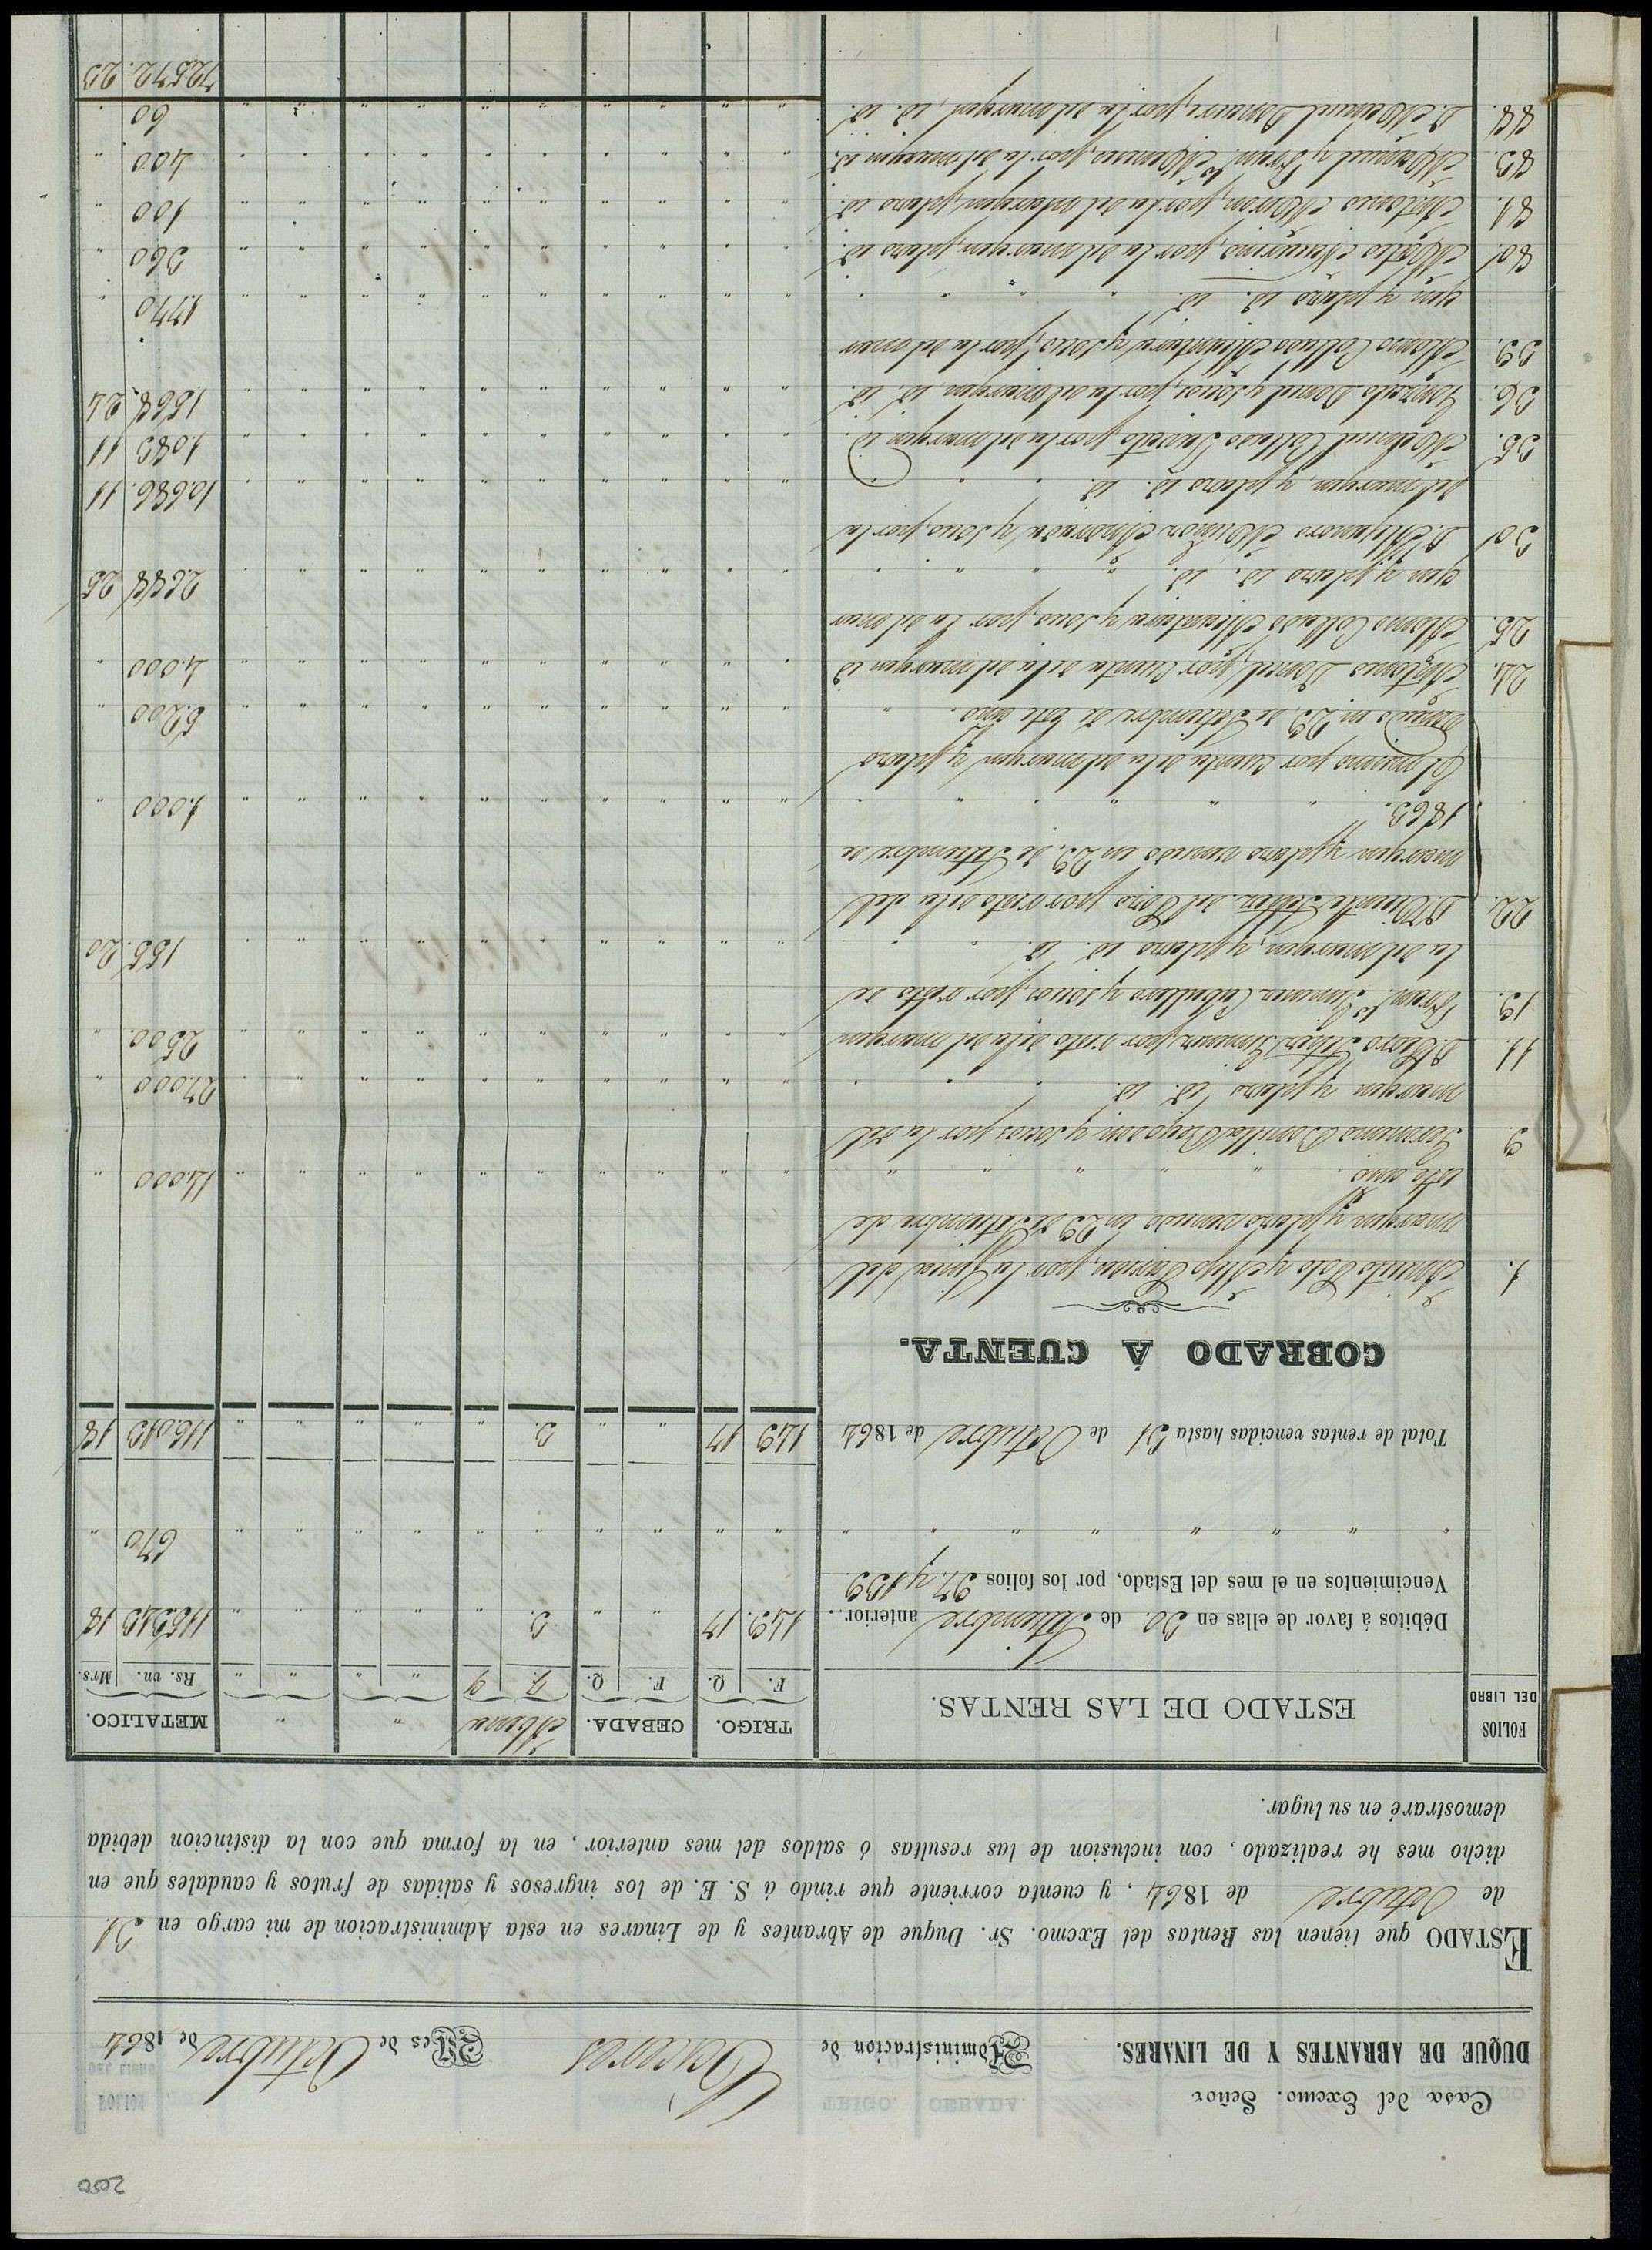 200
Casa del Excmo. Señor
DUQUE DE ABRANTES Y DE LINARES.
Administracion de Cáceres
Mes de Octubre de 1864
ESTADO que tienen las Rentas del Excmo. Sr. Duque de Abrantes y de Linares en esta Administracion de mi cargo en 31
de Octubre de 1864, y cuenta corriente que rindo á S. E. de los ingresos y salidas de frutos y caudales que en
dicho mes he realizado, con inclusion de las resultas ó saldos del mes anterior, en la forma que con la distincion debida
demostraré en su lugar.
FOLIOS DEL LIBRO ESTADO DE LAS RENTAS. TRIGO. CEBADA. METALICO.
F. Q. F. Q. Rs. vn. Mrs.
Débitos á favor de ellas en 30 de Setiembre anterior.. 149. 17 3. 115.343 18
Vencimientos en el mes del Estado, por los folios 97. y 139.
" " " " " " " " 670 "
Total de rentas vencidas hasta 31 de Octubre de 1864 149 17 3. 116.013 18
COBRADO Á CUENTA.
1. Benito Polo y Alejo Farias, por la Yerva del
margen y plazo vencido en 29 de Setiembre de
este año 14.000 "
9. Geronimo Bonilla Oreja y socios por la del
margen y plazo id. id. 27.000 "
11. D. Pedro Jimenez, por resto de la del margen 2500. "
19. Franco. Jimenez Caballero y socios, por resto de
la del margen, y plazo id. id. 155. 20
22. D. Vicente del Pozo, por resto de la del
margen y plazo vencido en 29, de Setiembre de
1863. 1.000 "
El mismo por cuenta de la del margen y plazo
vencido en 29, de Setiembre de este año. 5.200 "
24. Antonio Donaire, por cuenta de la del margen id 4.000 "
25. Alonso Collado Miontura y socio, por la del mar
gen y plazo id. id. 2.644 25
30. D. Alejandro Muñoz y socio, por la
del margen, y plazo id. id. 10.686. 11
35. Manuel Collado por la del margen id. 1.083 11
36. Gonzalo Daniel y socios, por la del margen id. id. 1564. 24
39. Alonso Collado Miontura y socio, por la del mar
gen y plazo id. id. 1.770 "
80. Mateo por la del margen, plazo id. 360 "
81. Antonio por la del margen, plazo id. 100 "
83. Miguel y Franco. por la del margen id. 400 "
84. D. Manuel Donaire, por la del margen, id. id. 60 "
72.572. 23